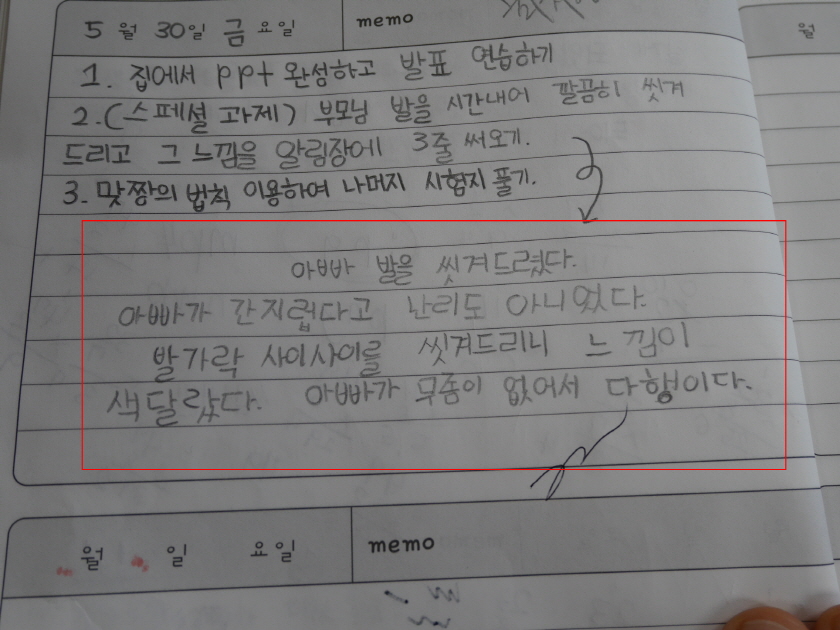 5 월 30일 금 요일 memo
월
1. 집에서 ppt 완성하고 발표 연습하기
2. (스페셜 과제) 부모님 발을 시간내어 깔끔히 씻겨
드리고 그 느낌을 알림장에 3줄 써오기.
3. 맞짱의 법칙 이용하여 나머지 시험지 풀기.
아빠 발을 씻겨드렸다.
아빠가 간지럽다고 난리도 아니었다.
발가락 사이사이를 씻겨드리니 느낌이
색달랐다. 아빠가 무좀이 없어서 다행이다.
월 일 요일 memo